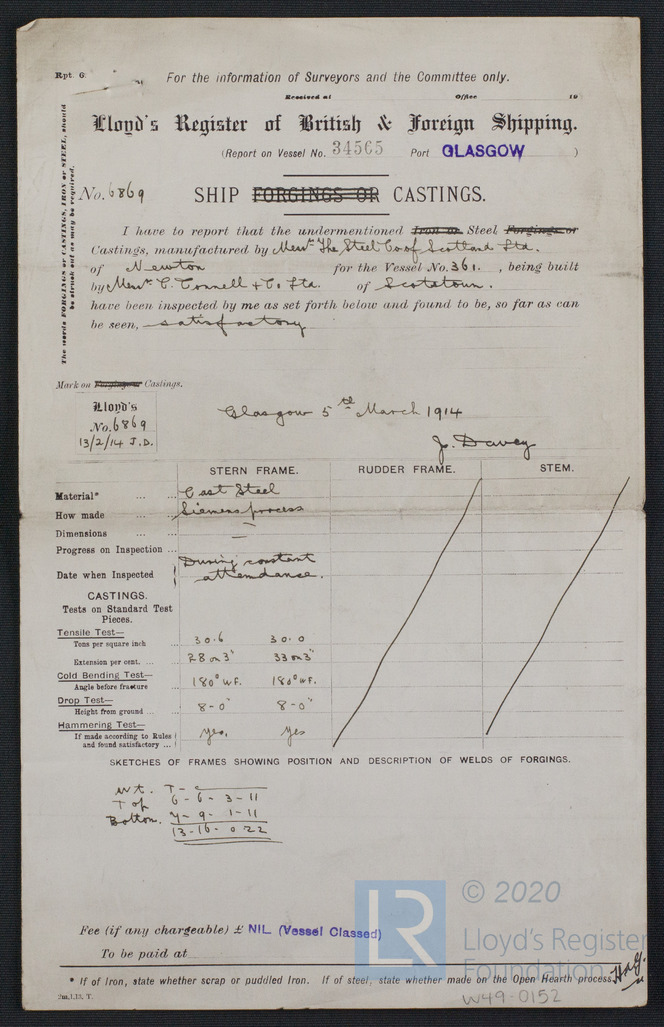 Rpt. 6.
For the information of Surveyors and the Committee only.
Received at Office 19
Lloyd's Register of British & Foreign Shipping.
(Report on Vessel No. 34565 Port GLASGOW )
No. 6869
SHIP FORGINGS OR CASTINGS.
The words FORGINGS or CASTINGS, IRON or STEEL, should
be struck out as may be required.
I have to report that the undermentioned Iron or Steel Forgings or
Castings, manufactured by Messrs The Steel Co of Scotland Ltd.
of Newton for the Vessel No. 361. , being built
by Messrs C. Connell & Co Ltd. of Scotstoun.
have been inspected by me as set forth below and found to be, so far as can
be seen, satisfactory
Mark on Forgings or Castings.
Lloyd's
No. 6869
13/2/14 J.D.
Glasgow 5th March 1914
J. Davey
STERN FRAME. RUDDER FRAME. STEM.
Material* ... ... Cast Steel
How made ... ... Siemens process
Dimensions ... ... —
Progress on Inspection ...
Date when Inspected During constant attendance.
CASTINGS.
Tests on Standard Test
Pieces.
Tensile Test—
Tons per square inch 30.6 30.0
Extension per cent. ... 28 on 3" 33 on 3"
Cold Bending Test—
Angle before fracture 180° WF. 180° WF.
Drop Test—
Height from ground ... 8-0" 8-0"
Hammering Test—
If made according to Rules
and found satisfactory ... yes, yes
SKETCHES OF FRAMES SHOWING POSITION AND DESCRIPTION OF WELDS OF FORGINGS.
Wt. T - c
Top 6 - 6 - 3 - 11
Bottom. 7 - 9 - 1 - 11
13 - 16 - 0 22
Fee (if any chargeable) £ NIL (Vessel Classed)
To be paid at
* If of Iron, state whether scrap or puddled Iron. If of steel, state whether made on the Open Hearth process.
2m,1,13. T.
© 2020
LR
Lloyd's Register
Foundation
W49-0152